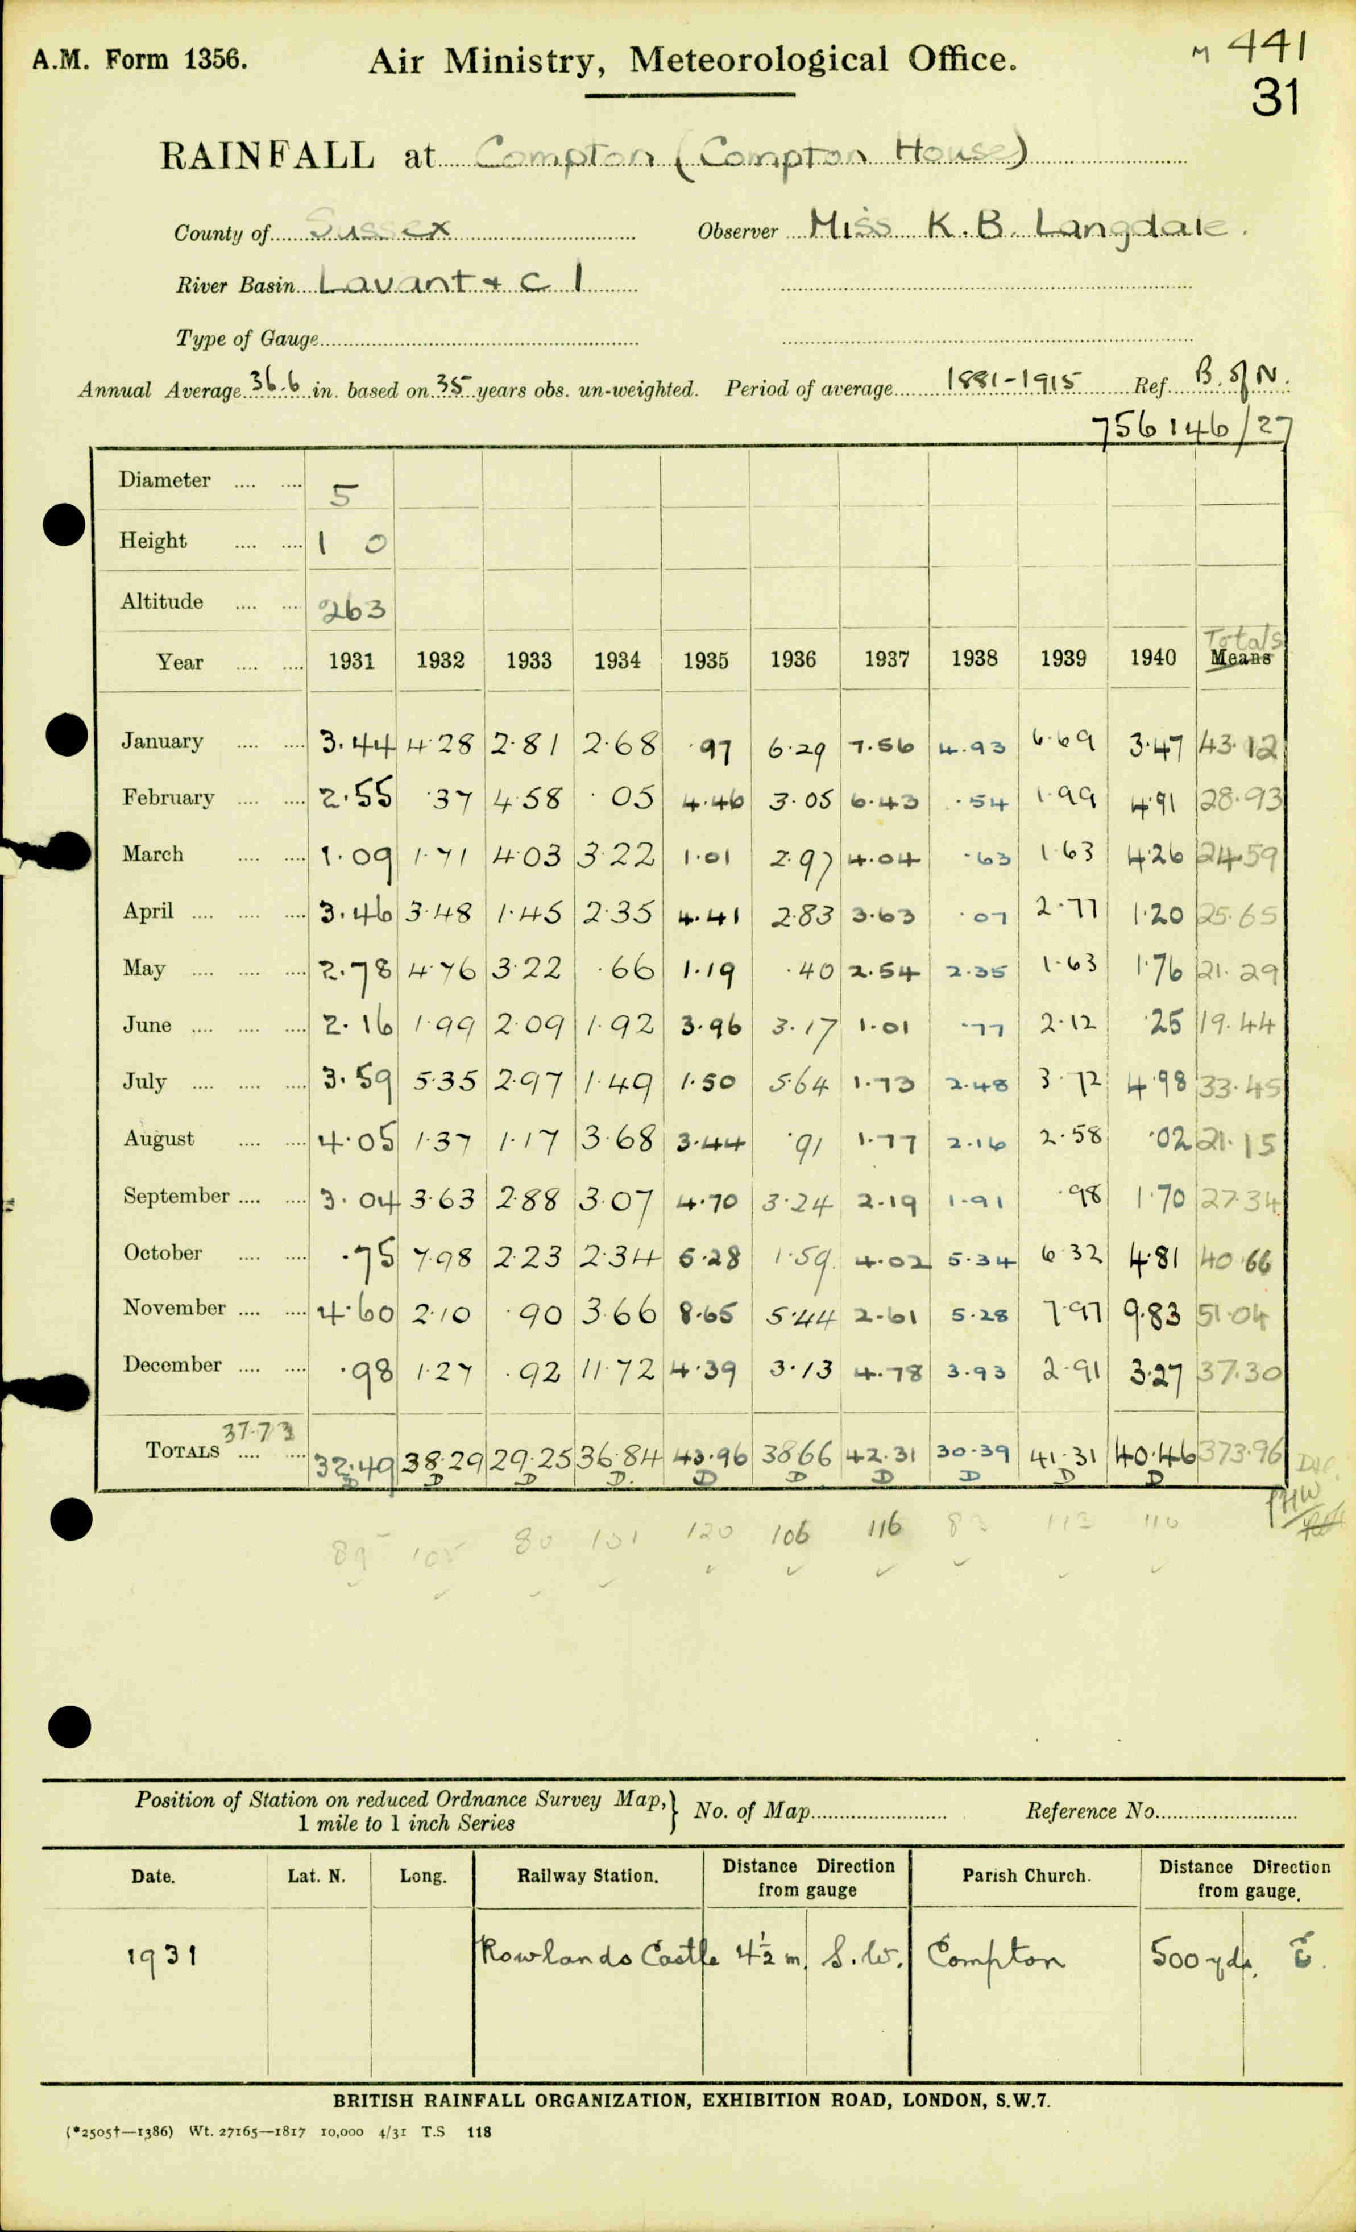 A.M. Form 1356. Air Ministry, Meteorological Office. M 441
31
RAINFALL at Compton (Compton House)
County of Sussex Observer Miss K.B. Langdale.
River Basin Lavant & C 1
Type of Gauge
Annual Average 36.6 in. based on 35 years obs. un-weighted. Period of average 1881-1915 Ref. B. of N.
756146/27
Diameter 5
Height 1 0
Altitude 263
Totals
Year 1931 1932 1933 1934 1935 1936 1937 1938 1939 1940 Means
January 3.44 4.28 2.81 2.68 .97 6.29 7.56 4.93 6.69 3.47 43.12
February 2.55 .37 4.58 .05 4.46 3.05 6.43 .54 1.99 4.91 28.93
March 1.09 1.71 4.03 3.22 1.01 2.97 4.04 .63 1.63 4.26 24.59
April 3.46 3.48 1.45 2.35 4.41 2.83 3.63 .07 2.77 1.20 25.65
May 2.78 4.76 3.22 .66 1.19 .40 2.54 2.35 1.63 1.76 21.29
June 2.16 1.99 2.09 1.92 3.96 3.17 1.01 .77 2.12 .25 19.44
July 3.59 5.35 2.97 1.49 1.50 5.64 1.73 2.48 3.72 4.98 33.45
August 4.05 1.37 1.17 3.68 3.44 .91 1.77 2.16 2.58 .02 21.15
September 3.04 3.63 2.88 3.07 4.70 3.24 2.19 1.91 .98 1.70 27.34
October .75 7.98 2.23 2.34 5.28 1.59 4.02 5.34 6.32 4.81 40.66
November 4.60 2.10 .90 3.66 8.65 5.44 2.61 5.28 7.97 9.83 51.04
December .98 1.27 .92 11.72 4.39 3.13 4.78 3.93 2.91 3.27 37.30
37.73
TOTALS 32.49 38.29 29.25 36.84 43.96 38.66 42.31 30.39 41.31 40.46 373.96
D D D D. D D D D D D
PHW
89 105 80 101 120 106 116 83 113 110
Position of Station on reduced Ordnance Survey Map, } No. of Map Reference No.
1 mile to 1 inch Series
Date. Lat. N. Long. Railway Station. Distance Direction from gauge Parish Church. Distance Direction from gauge.
1931 Rowlands Castle 4½ m. S.W. Compton 500 yds. E.
BRITISH RAINFALL ORGANIZATION, EXHIBITION ROAD, LONDON, S.W.7.
(*2505†—1386) Wt. 27165—1817 10,000 4/31 T.S 118